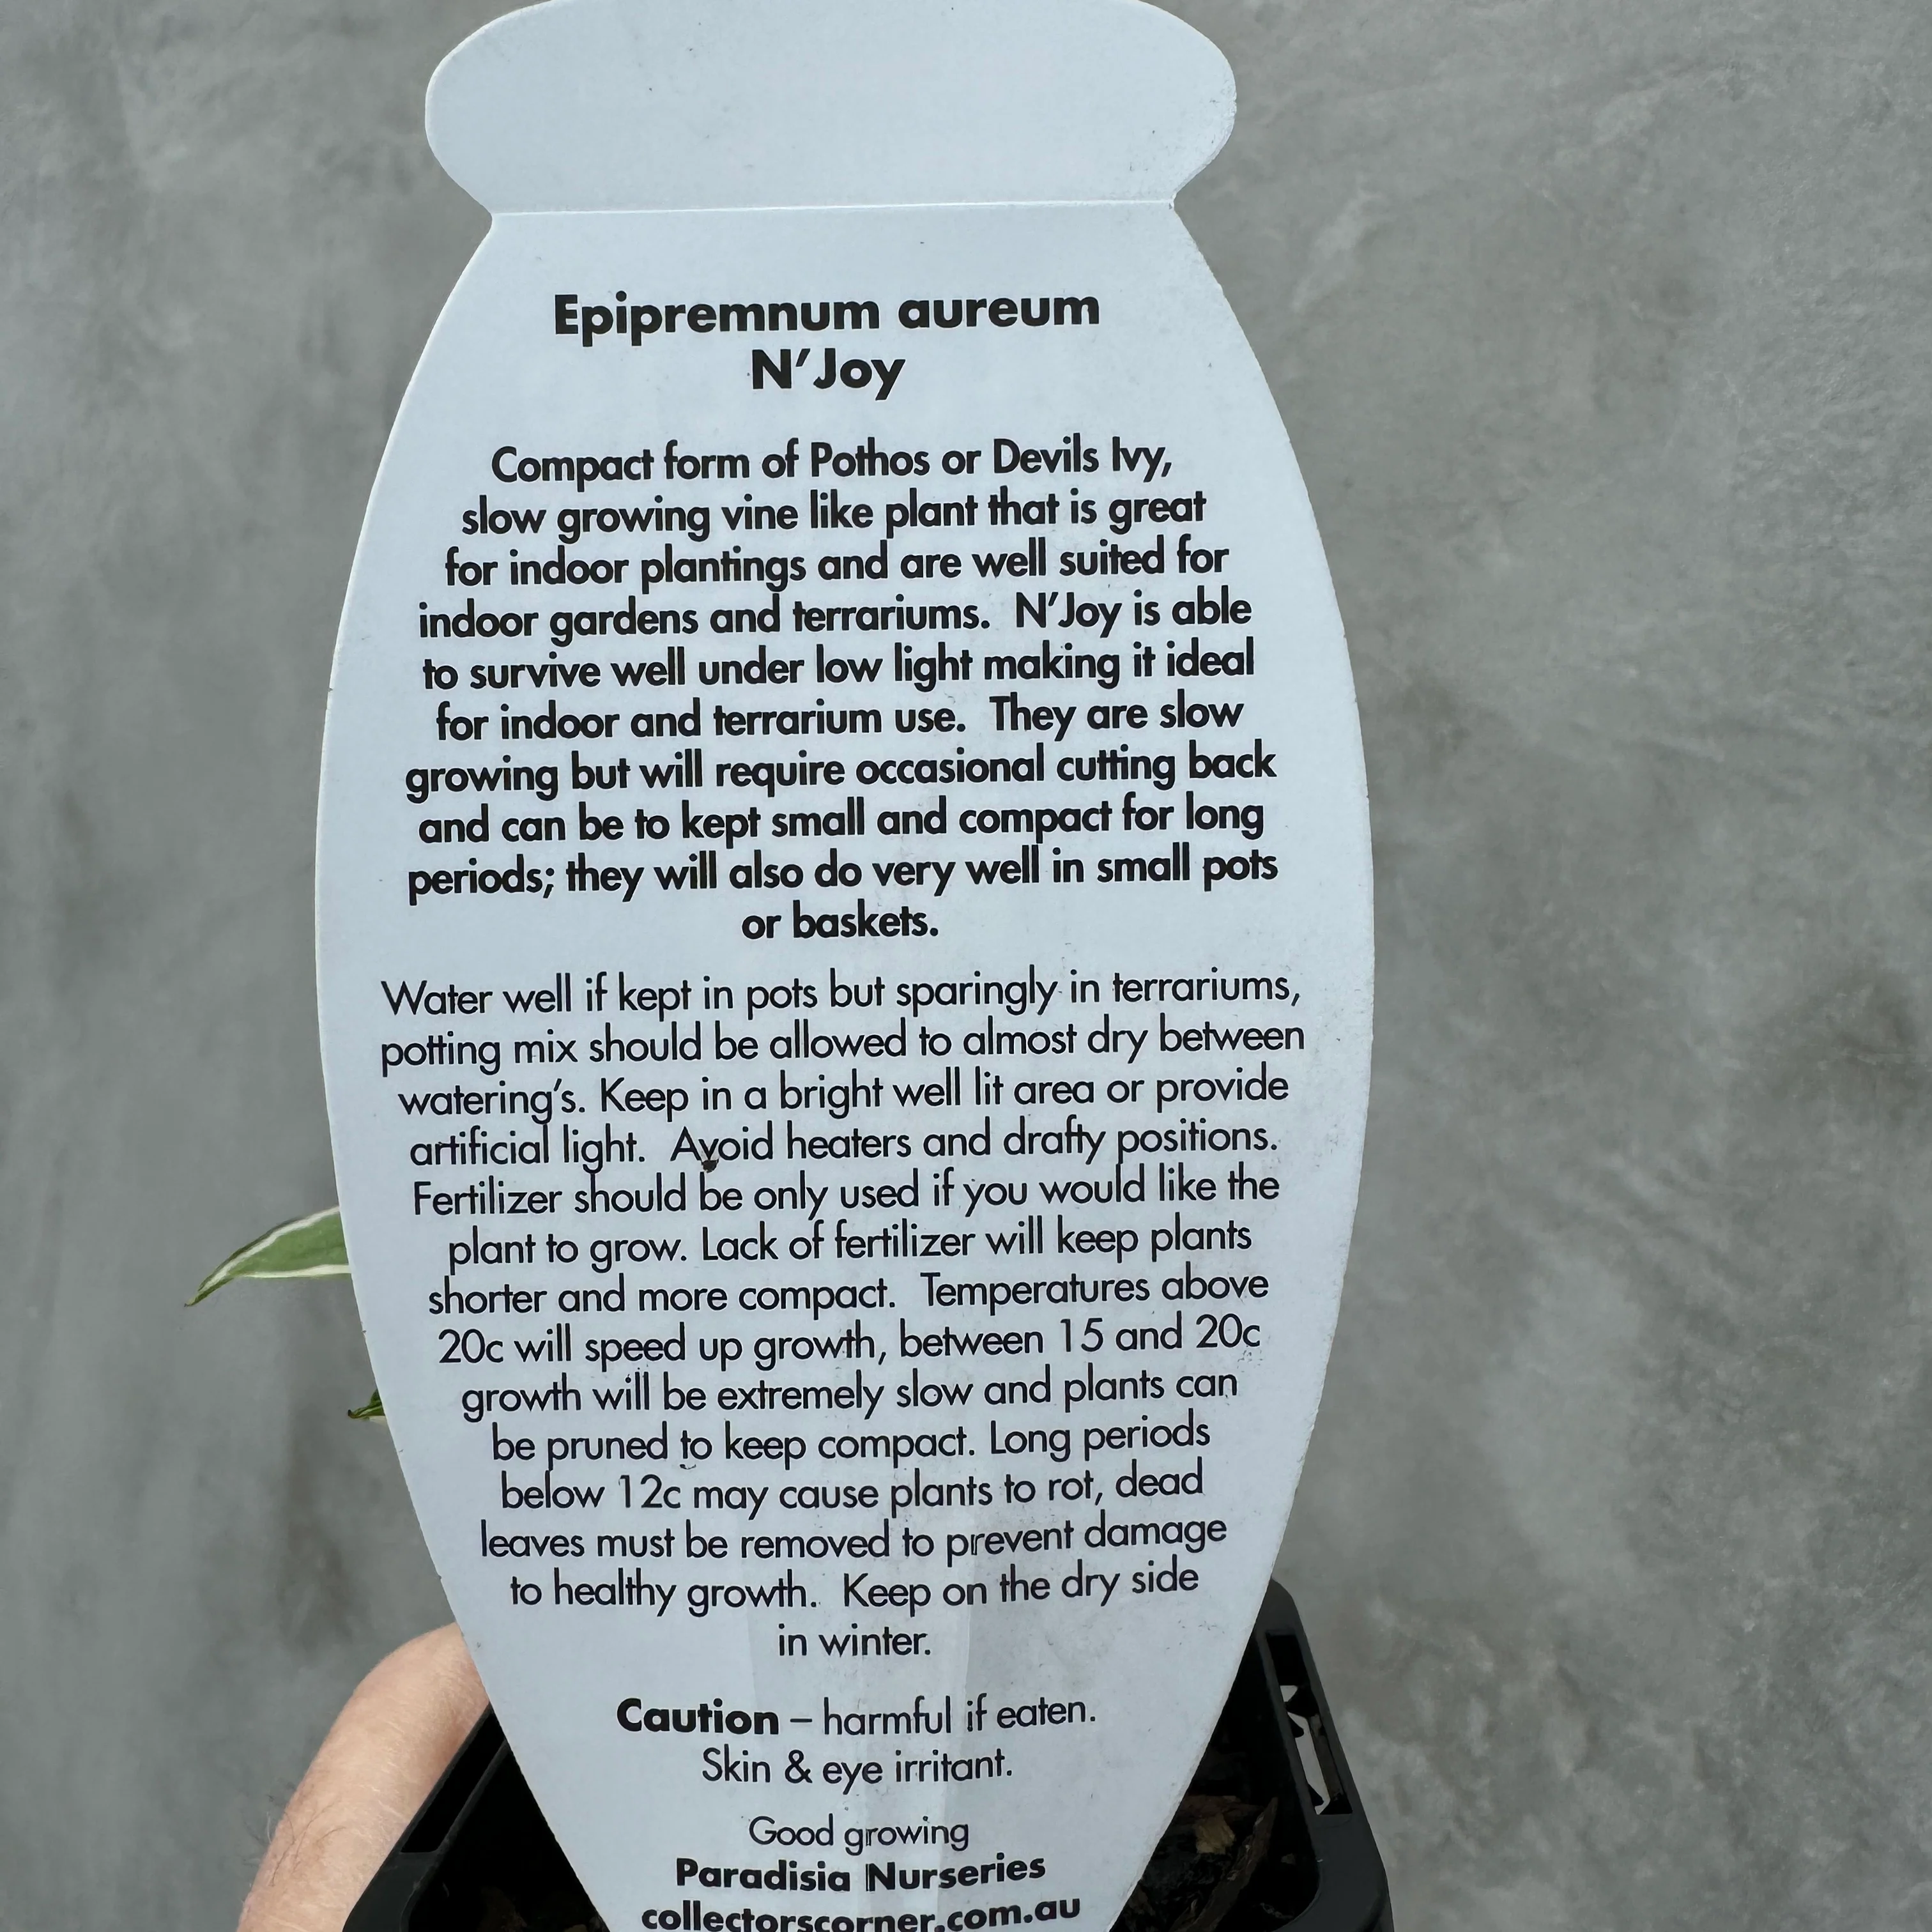 Epipremnum aureum
N'Joy
Compact form of Pothos or Devils Ivy,
slow growing vine like plant that is great
for indoor plantings and are well suited for
indoor gardens and terrariums. N'Joy is able
to survive well under low light making it ideal
for indoor and terrarium use. They are slow
growing but will require occasional cutting back
and can be to kept small and compact for long
periods; they will also do very well in small pots
or baskets.
Water well if kept in pots but sparingly in terrariums,
potting mix should be allowed to almost dry between
watering's. Keep in a bright well lit area or provide
artificial light. Avoid heaters and drafty positions.
Fertilizer should be only used if you would like the
plant to grow. Lack of fertilizer will keep plants
shorter and more compact. Temperatures above
20c will speed up growth, between 15 and 20c
growth will be extremely slow and plants can
be pruned to keep compact. Long periods
below 12c may cause plants to rot, dead
leaves must be removed to prevent damage
to healthy growth. Keep on the dry side
in winter.
Caution – harmful if eaten.
Skin & eye irritant.
Good growing
Paradisia Nurseries
collectorscorner.com.au